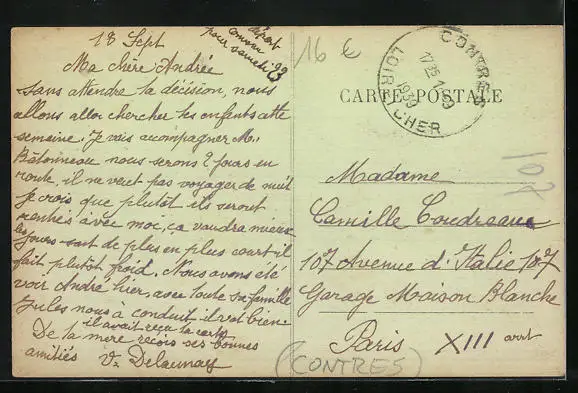 18 Sept
départ
convenu
pour samedi 23
Ma chère Andrée
sans attendre ta décision, nous
allons aller chercher les enfants cette
semaine. Je vais accompagner M.
Bâtonneau nous serons 2 jours en
route, il ne veut pas voyager de nuit
Je crois que plutôt ils seront
rentrés avec moi, ça vaudra mieux
les jours sont de plus en plus court il
fait plutôt froid. Nous avons été
voir André hier, avec toute sa famille
Jules nous à conduit il vat bien.
il avait reçu ta carte
De ta mère reçois ses bonnes
amitiés V. Delaunay
16 €
CONTRES
1735
1939
LOIR-CHER
CARTE POSTALE
107
Madame
Camille Coudreau
107 Avenue d'Italie 107
Garage Maison Blanche
Paris XIII arrt
(CONTRES)